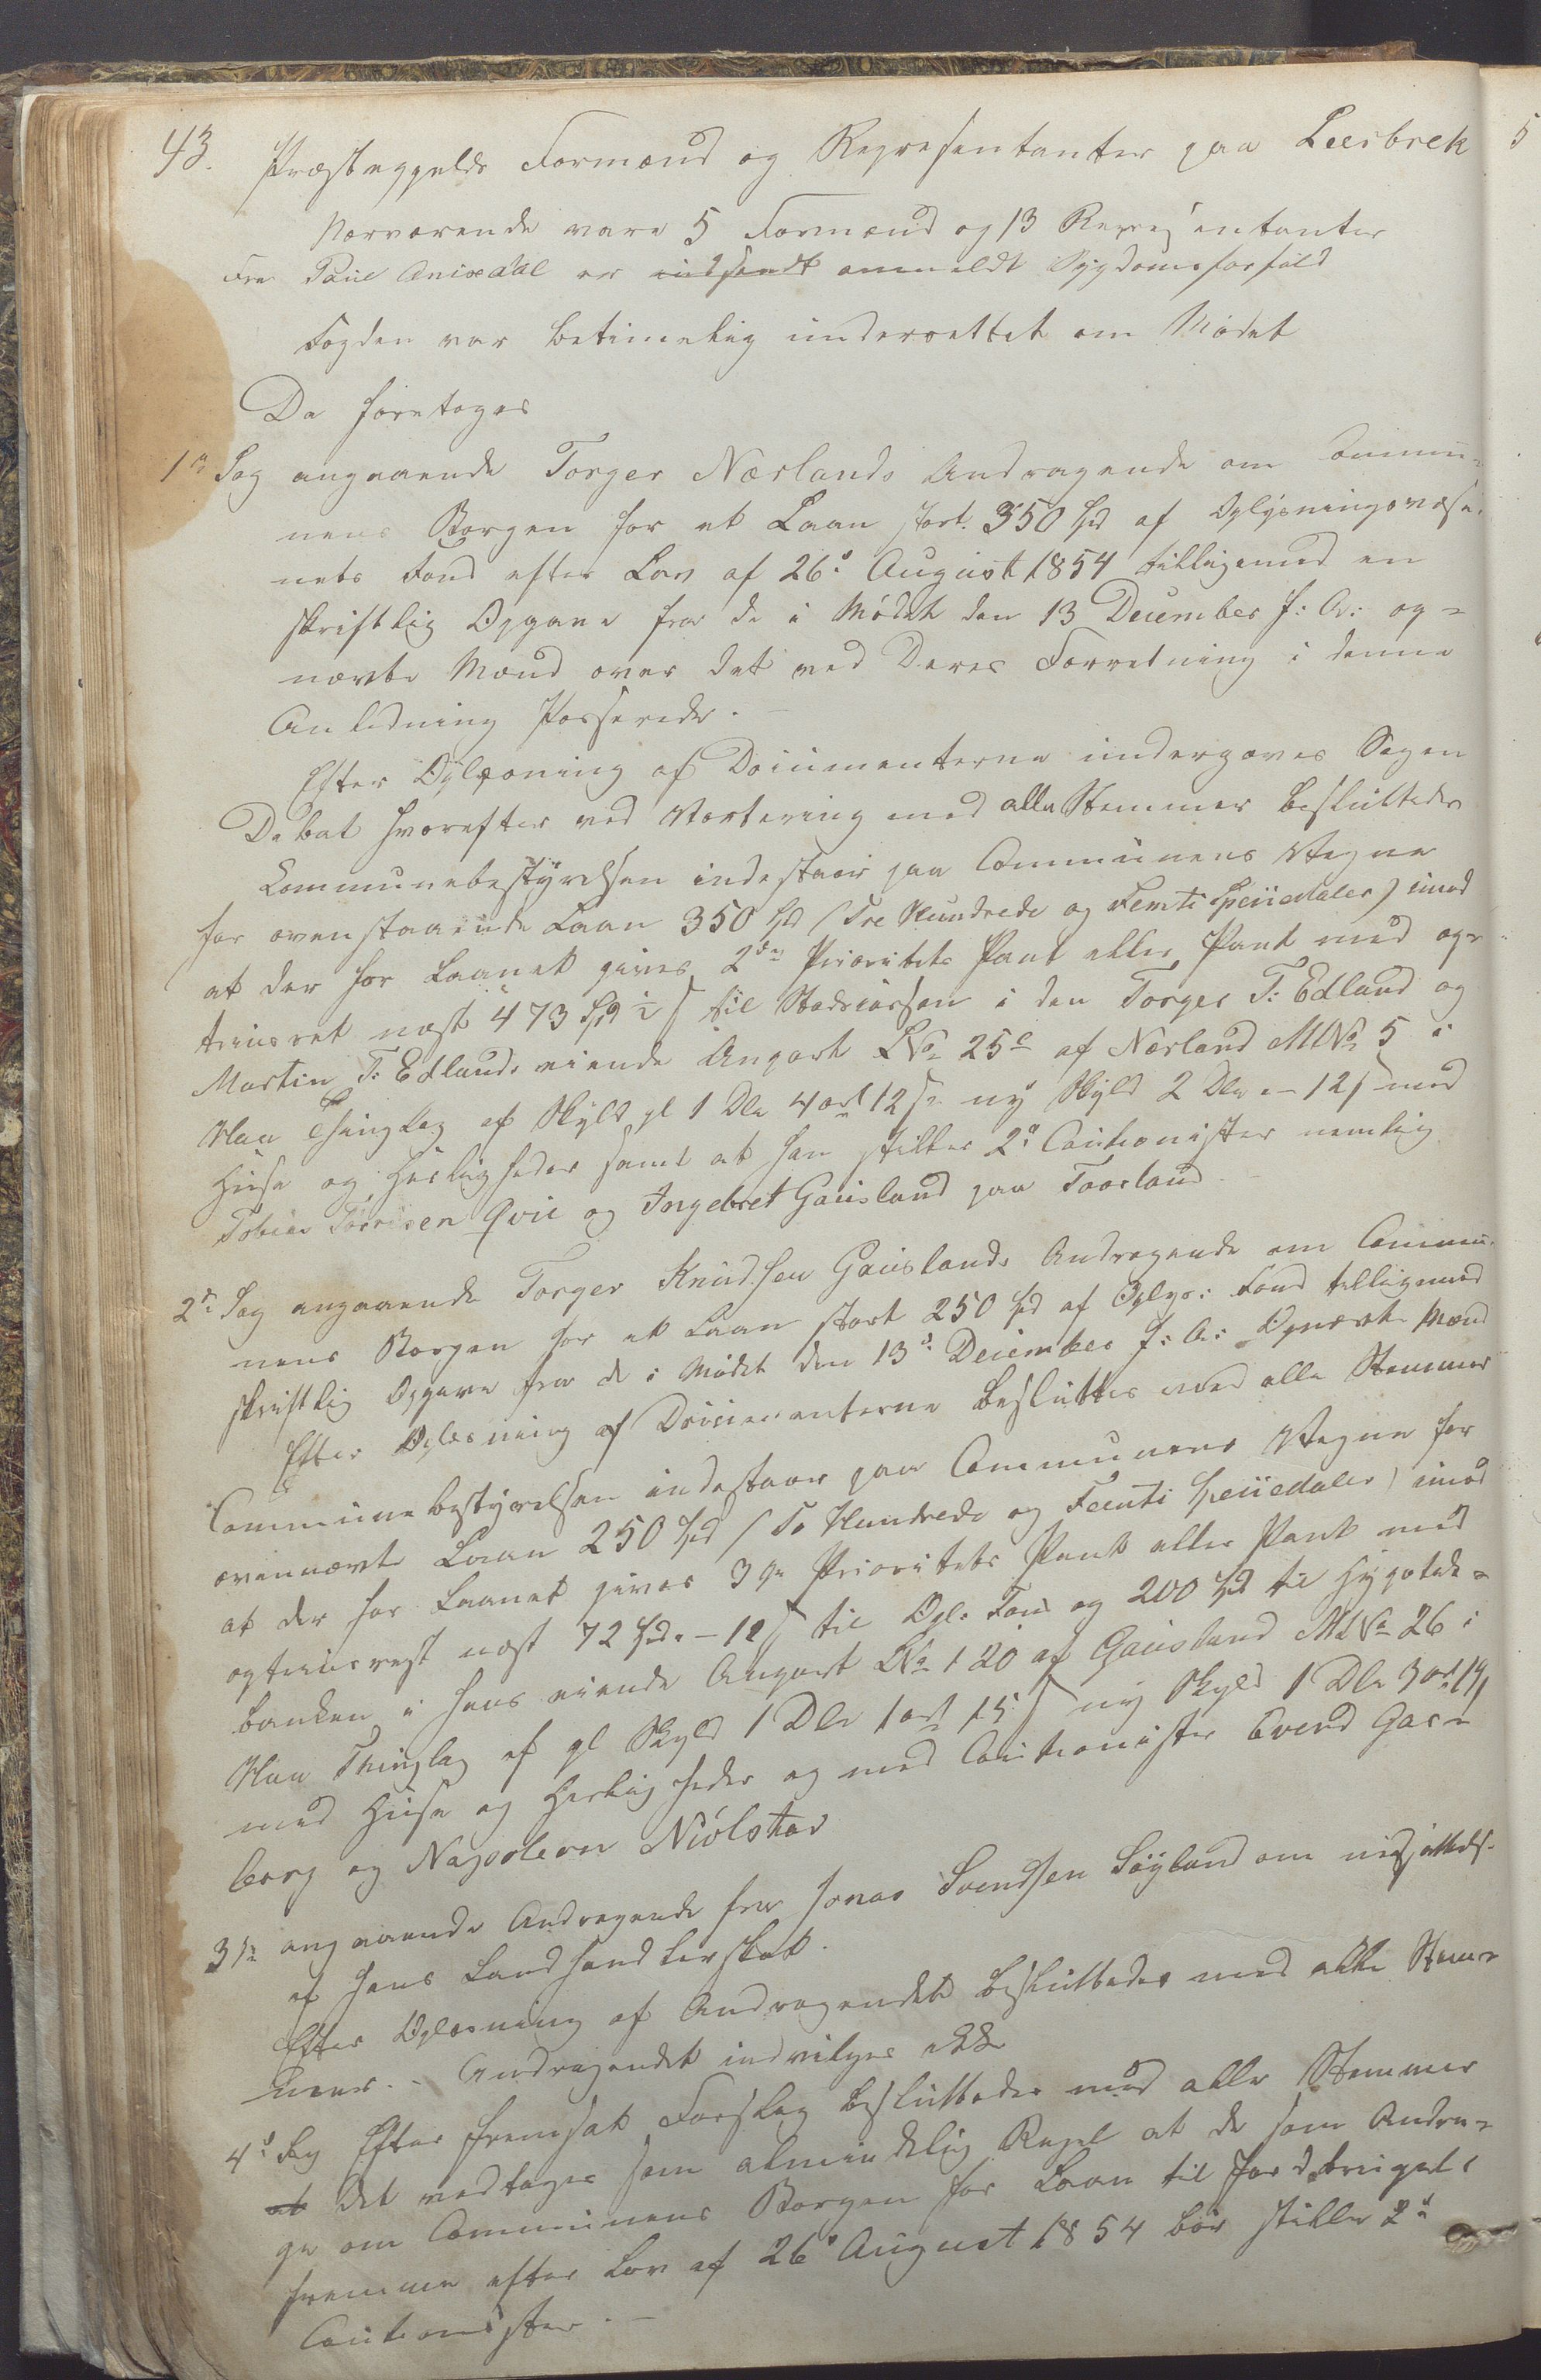 43.
Præstegjelds Formænd og Repræsentanter paa Leesbrek
Nærværende vare 5 Formænd og 13 Repræsentanter
Fra Paul Anixdal er indsendt anmeldt Sygdomsforfald
Fogden var betimelig underrettet om Mødet
Da foretoges
1ste Sag angaaende Torger Nærlands Andragende om Commu-
nens Borgen for et Laan stort 350 Spd af Oplysningsvæse-
nets Fond efter Lov af 26de August 1854 tilligemed en
skriftlig Opgave fra de i Mødet den 13 December f: A: op-
nævte Mænd over det ved Deres Forretning i denne
Anledning Passerede. –
Efter Oplæsning af Documenterne undergaves Sagen
Debat hvorefter ved Vortering med alle Stemmer besluttedes
Communebestyrelsen indestaar paa Communens Vegne
for ovenstaaende Laan 350 Spd (Tre Hundrede og Femti Speciedaler) imod
at der for Laanet gives 2den Prioritets Pant eller Pant med op-
trinsret næst 473 Spd til i den Torger T: Edland og
Martin T: Edlands eiende Anpart LNo 25c af Nærland MNo 5 i
Haa Thinglag af Skyld gl 1 Dlr 4 ort 12 s ny Skyld 2 Dlr – 12 s med
Huse og Herligheder samt at han stiller 2de Cautionister nemlig
Tobias Qvie og Ingebret Gausland paa Taarland
2den Sag angaaende Torger Knudsen Gauslands Andragende om Commu-
nens Borgen for et Laan stort 250 Spd af Oplys: Fond tilligemed
skriftlig Opgave fra de i Mødet den 13de December f: A: Opnævte Mænd
Efter Oplæsning af Documenterne besluttes med alle Stemmer
Communebestyrelsen indestaar paa Communens Vegne for
ovennævte Laan 250 Spd (To Hundrede og Femti Speciedaler) imod
at der for Laanet gives 3die Prioritets Pant eller Pant med
optrinsret næst 72 Spd. – 12 s til Opl: Fond og 200 Spd til Hypothek-
banken i hans eiende Anpart LNo 120 af Gausland MNo 26 i
Haa Thinglag af gl Skyld 1 Dlr 1 ort 15 s ny Skyld 1 Dlr 3 ort 19 s
med Huse og Herligheder og med Cautionister Gar-
borg og Napoleon Niølstad
3die angaaende Andragende fra Jonas Svendsen Søyland om
af hans Landhandlerskat.
Efter Oplæsning af Andragendet besluttedes med alle Stem-
mer. – Andragendet indvilges ikke
4de Sag Efter fremsat Forslag besluttedes med alle Stemmer
at det vedtages som almindelig Regel at de som Andra-
ge om Communens Borgen for Laan til Jordbrugets
fremme efter Lov af 26de August 1854 bør stille 2de
Cautionister. –
5